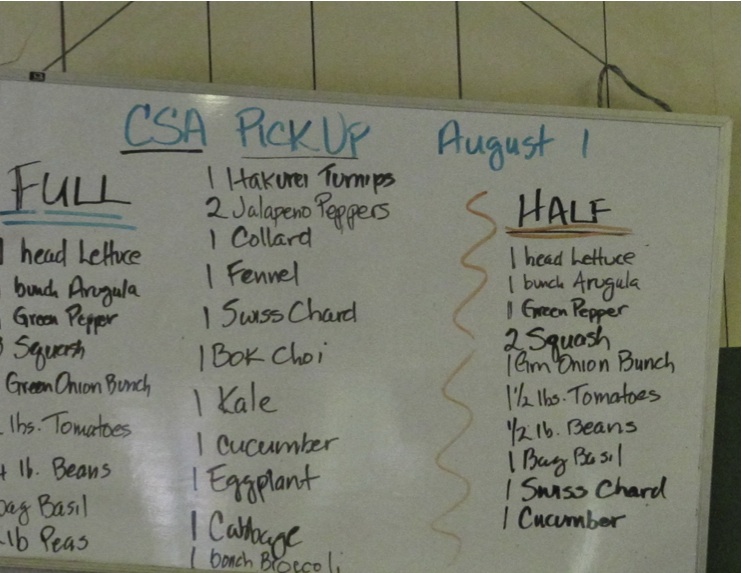 CSA PICK UP August 1
FULL
1 head Lettuce
bunch Arugula
Green Pepper
Squash
Green Onion Bunch
lbs. Tomatoes
lb. Beans
bag Basil
lb Peas
1 Hakurei Turnips
2 Jalapeno Peppers
1 Collard
1 Fennel
1 Swiss Chard
1 Bok Choi
1 Kale
1 cucumber
1 Eggplant
1 Cabbage
1 bunch Broccoli
HALF
1 head Lettuce
1 bunch Arugula
1 Green Pepper
2 Squash
1 Grn Onion Bunch
1 1/2 lbs. Tomatoes
1/2 lb. Beans
1 Bag Basil
1 Swiss Chard
1 Cucumber